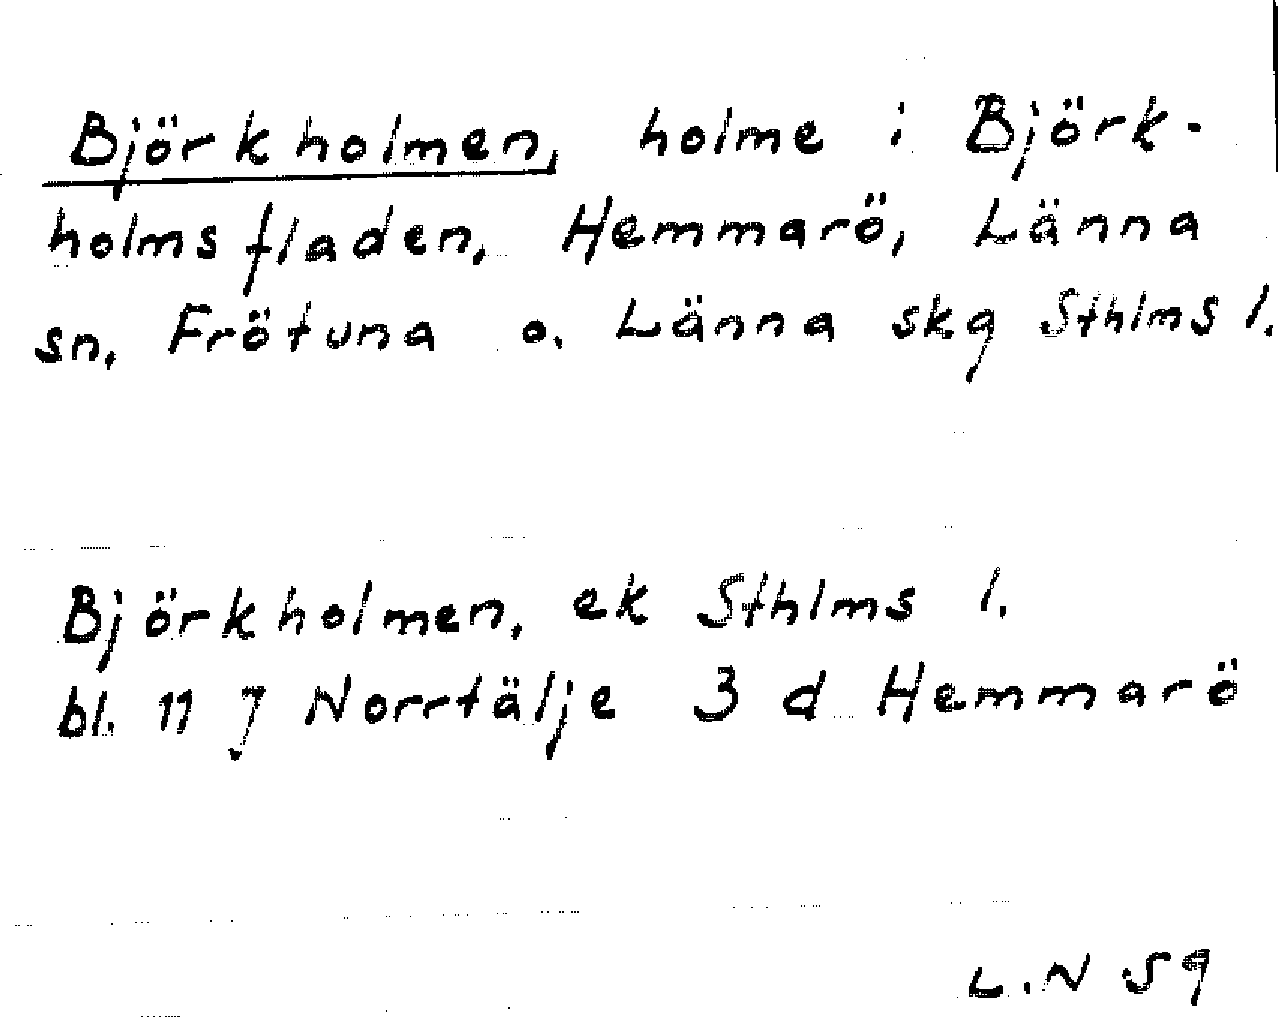 Björkholmen, holme i Björk-
holmsfladen, Hemmarö, Länna
sn, Frötuna o. Länna skg Sthlms l.
Björkholmen, ek Sthlms l.
bl. 11 J Norrtälje 3 d Hemmarö
L.N 59